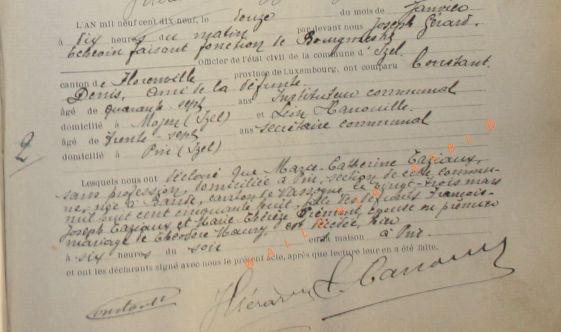 L'AN mil neuf cent dix neuf, le douze du mois de Janvier
à dix heures du matin par devant nous Joseph Gérard,
Echevin faisant fonction de Bourgmestre
Officier de l'état civil de la commune d'Izel
canton de Florenville province de Luxembourg, ont comparu Constant
Denis, ami de la défunte
âgé de quarante sept ans Instituteur communal
domicilié à Moyen (Izel) et Léon
âgé de trente sept ans secrétaire communal
domicilié à Pin (Izel)
2
Lesquels nous ont déclaré que Marie Catherine Laziaux,
sans profession, domiciliée à Pin, section de cette commu-
ne, née à Bande, canton de Nassogne, le vingt-trois mars
mil huit cent cinquante huit, fille des défunts François-
Joseph Laziaux et Marie Thérèse épouse en première
mariage de Théodore Mauny est décédée, hier
à six heures du soir en sa maison à Pin
et ont les déclarants signé avec nous le présent acte, après que lecture leur en a été faite.